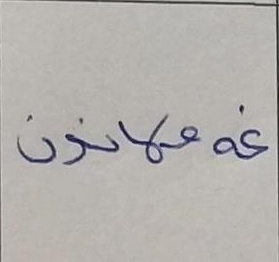 غه مهانون